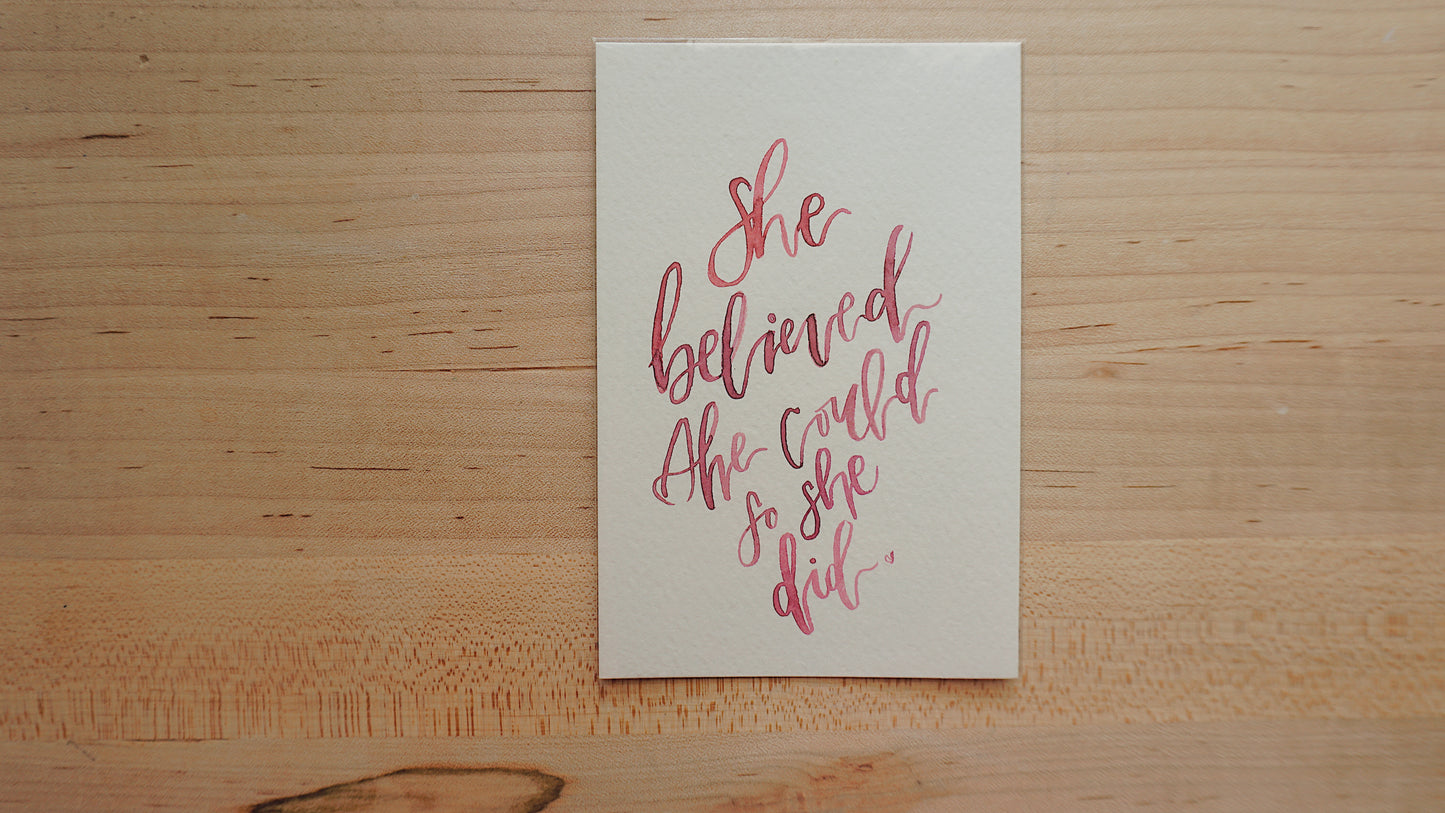 She
believed
she could
so she
did.